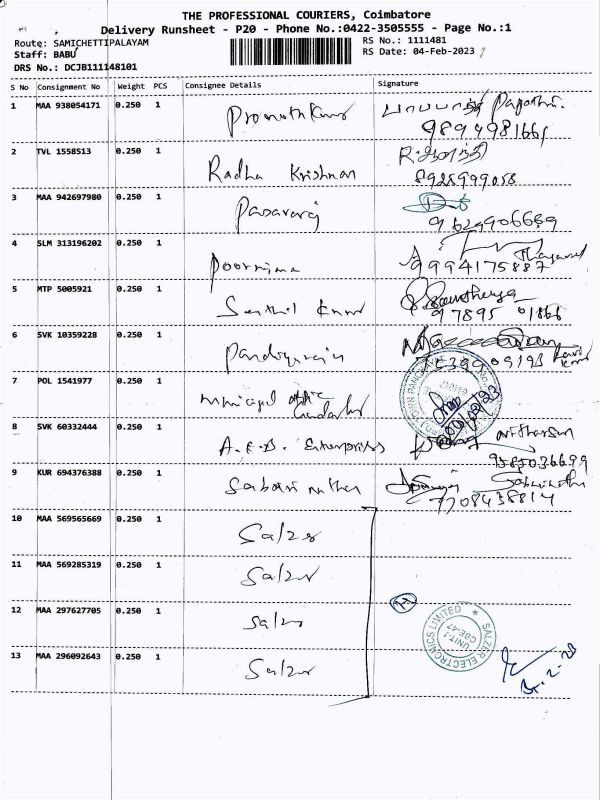 THE PROFESSIONAL COURIERS, Coimbatore
Delivery Runsheet - P20 - Phone No.:0422-3505555 - Page No.:1
Route: SAMICHETTIPALAYAM
RS No.: 1111481
Staff: BABU
RS Date: 04-Feb-2023
DRS No.: DCJB111148101
S No Consignment No Weight PCS Consignee Details Signature
1 MAA 938054171 0.250 1 Pramoth Kumar பாப்பாத்தி Papathi.
2 TVL 1558513 0.250 1 Radha Krishnan
8925999058
3 MAA 942697980 0.250 1
9629906689
4 SLM 313196202 0.250 1 Poornima
9994175887
5 MTP 5005921 0.250 1 Senthil Kumar Sowtherya
97895 01866
6 SVK 10359228 0.250 1 Pandiyaraju
7 POL 1541977 0.250 1 Municipal office
8 SVK 60332444 0.250 1 A.E.B. Enterprises
9585036699
9 KUR 694376388 0.250 1 Sabarinathan
7708438814
10 MAA 569565669 0.250 1 Salzer
11 MAA 569285319 0.250 1 Salzer
12 MAA 297627705 0.250 1 Salzer
SALZER ELECTRONICS LIMITED
UNIT-1
CBE-47
13 MAA 296092643 0.250 1 Salzer